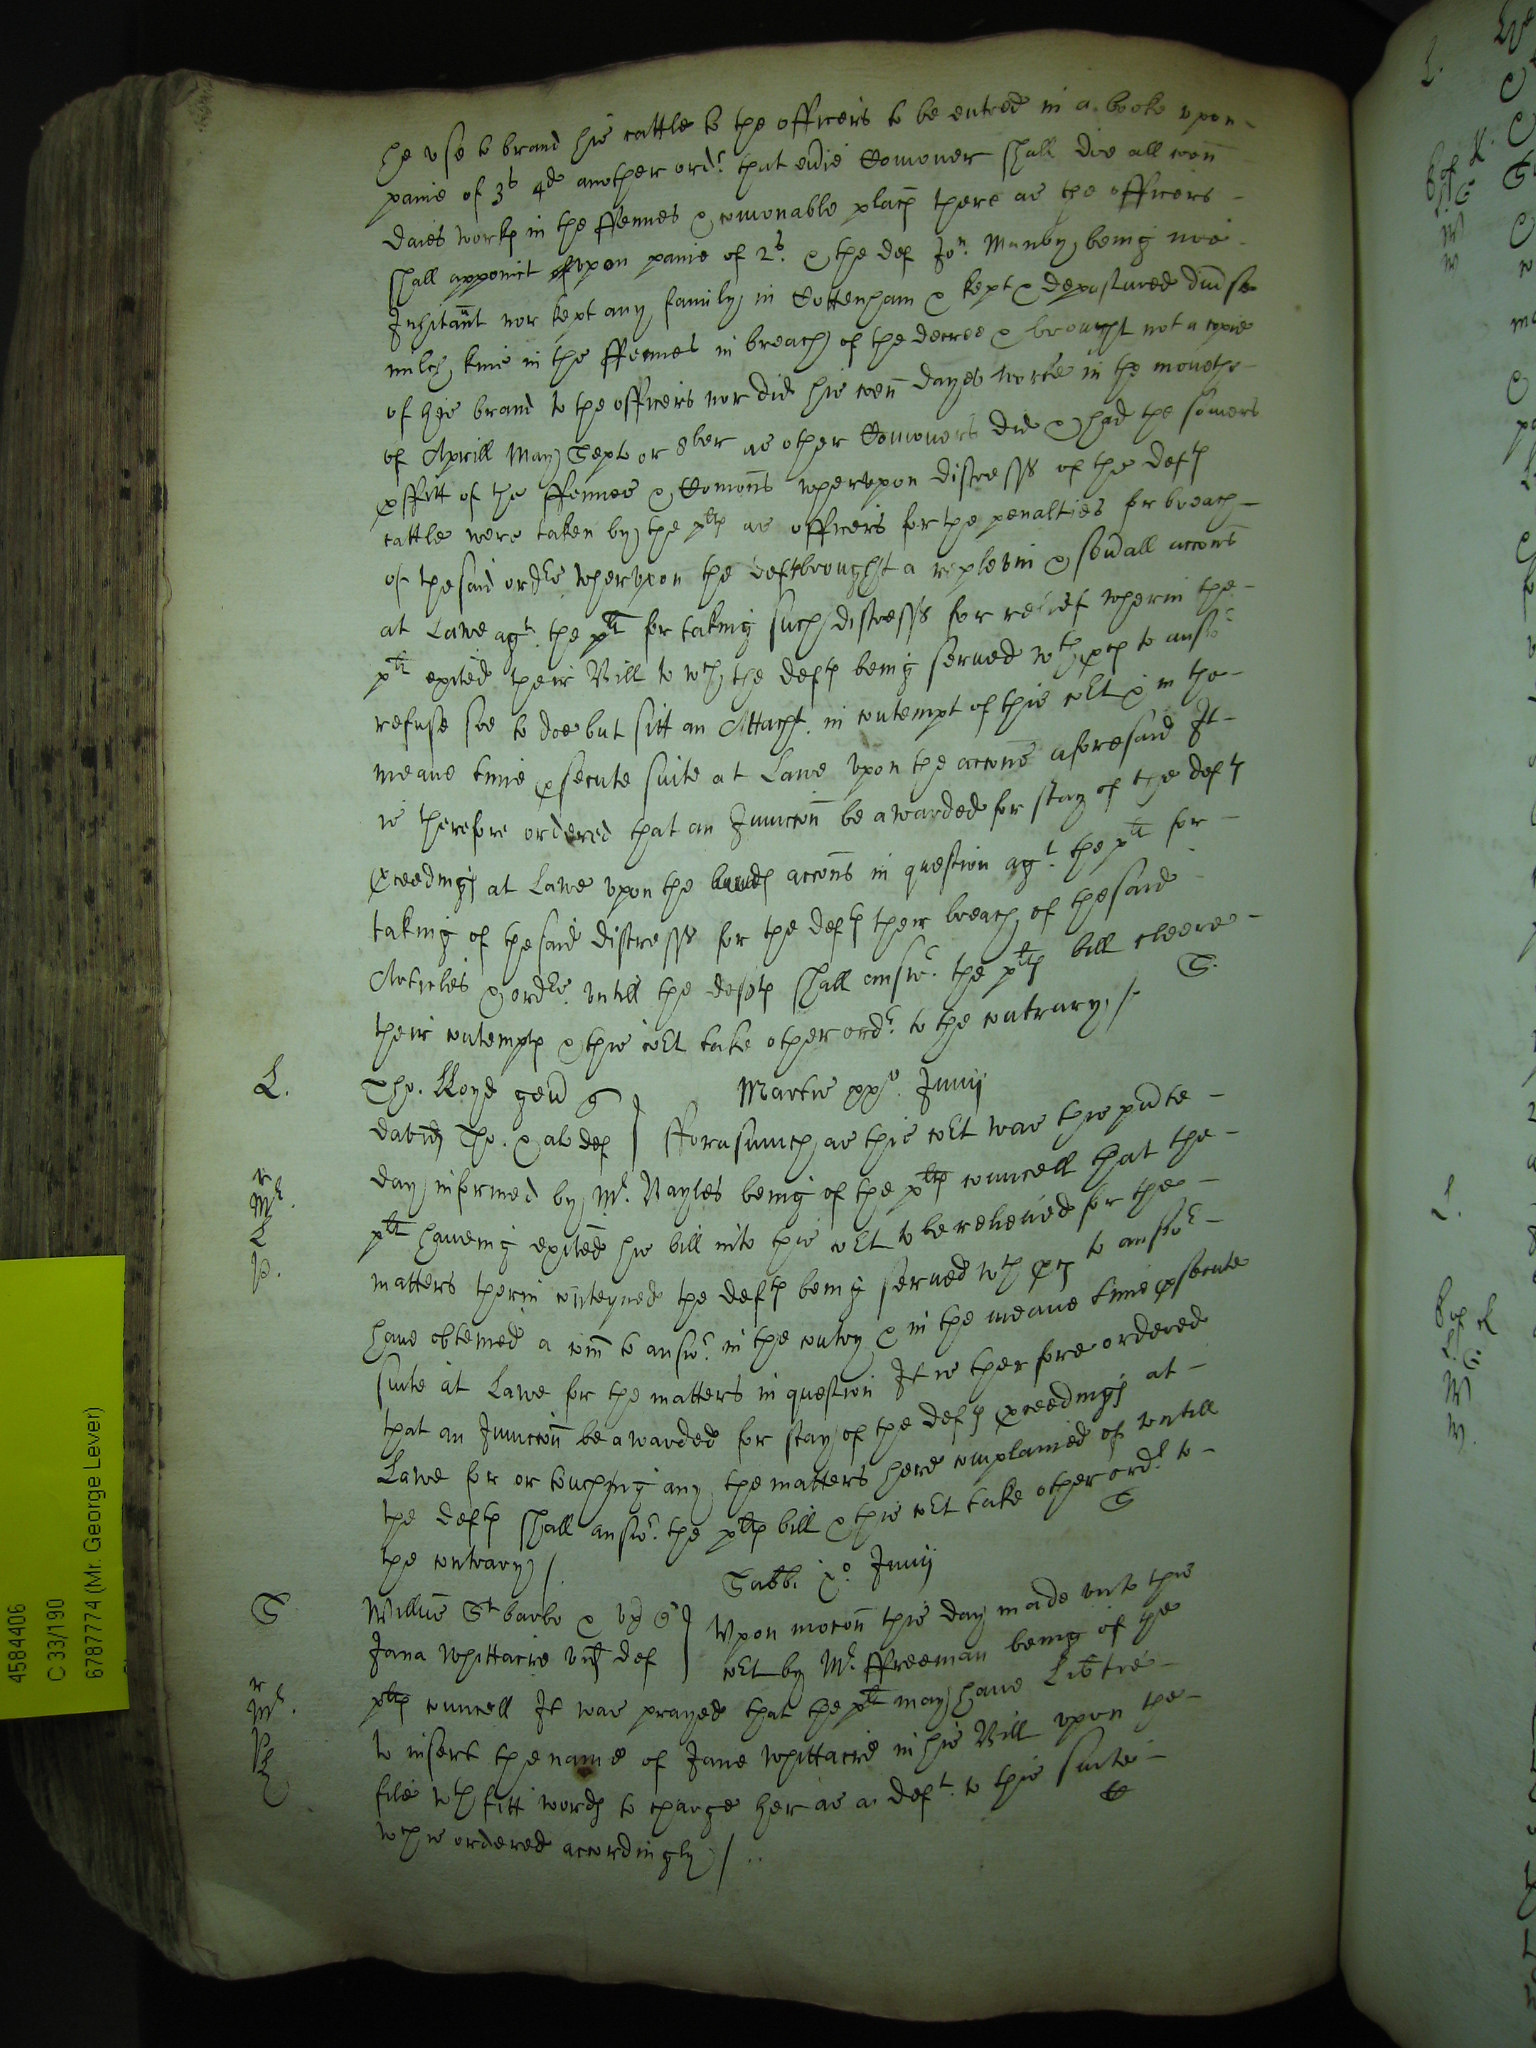 he use to brand his cattle to the officers to be entred in a booke upon
paine of 3s 4d another ordr. that evie Comoner shall doe all comn
daies works in the ffennes & comonable places there as the officers
shall appoint upon paine of 2s. & the def Jon. Manby being noe
Inhitant nor kept any family in Cottenham & kept & depastured divse
milch kine in the ffennes in breach of the decree & brought not a copie
of his brand to the officers nor did his comn dayes worke in the moneths
of Aprill May Sept or 8ber as other Comoners did & had the somers
pffitt of the ffennes & Comons wherupon distresse of the defts
cattle were taken by the plts as officers for the penalties for breach
of the said ordrs wherupon the defts brought a replevin & sevall accons
at Lawe agt. the plt for taking such distresse for releif wherin the
plt exited their Bill to wch the defts being served wth pces to answr
refuse soe to doe but sitt an Attachmt. in contempt of this cort & in the
meane time psecute suite at Lawe upon the accons aforesaid It
is therefore ordered that an Iniunccon be awarded for stay of the defts
pceedings at Lawe upon the accons in question agt. the plt for
taking of the said distresse for the defts their breach of the said
Articles & ordrs. untill the defts shall answr. the plts bill cleere
their contempts & this cort take other ordr. to the contrary /. S.
L. Tho. Lloyd gen q Martis xxo. Junij
David Tho. & al def } fforasmuch as this cort was this pnte
day informed by Mr. Vayles being of the plts councell that the
r Mr. plt haveing exited his bill into this cort to be releived for the
L matters therin conteyned the defts being served wth pces to answr
P. have obteined a comn to answr. in the contry & in the meane time psecute
suite at Lawe for the matters in question It is therfore ordered
that an Iniunccon be awarded for stay of the defts pceedings at
Lawe for or touching any the matters here complained of untill
the defts shall answr. the plts bill & this cort take other ordr. to
the contrary /. S
Sabbi xo Junij
S Willus St barbe & ux q } Upon mocon this day made unto this
Jana Whittacre vid def } cort by Mr. ffreeman being of the
r Mr. plts councell It was prayed that the plt may have Libtie
to insert the name of Jane Whittacre in his Bill upon the
file wth fitt words to charge her as a deft. to this suite
wch is ordered accordingly /..
4584406
C 33/190
6787774 (Mr. George Lever)